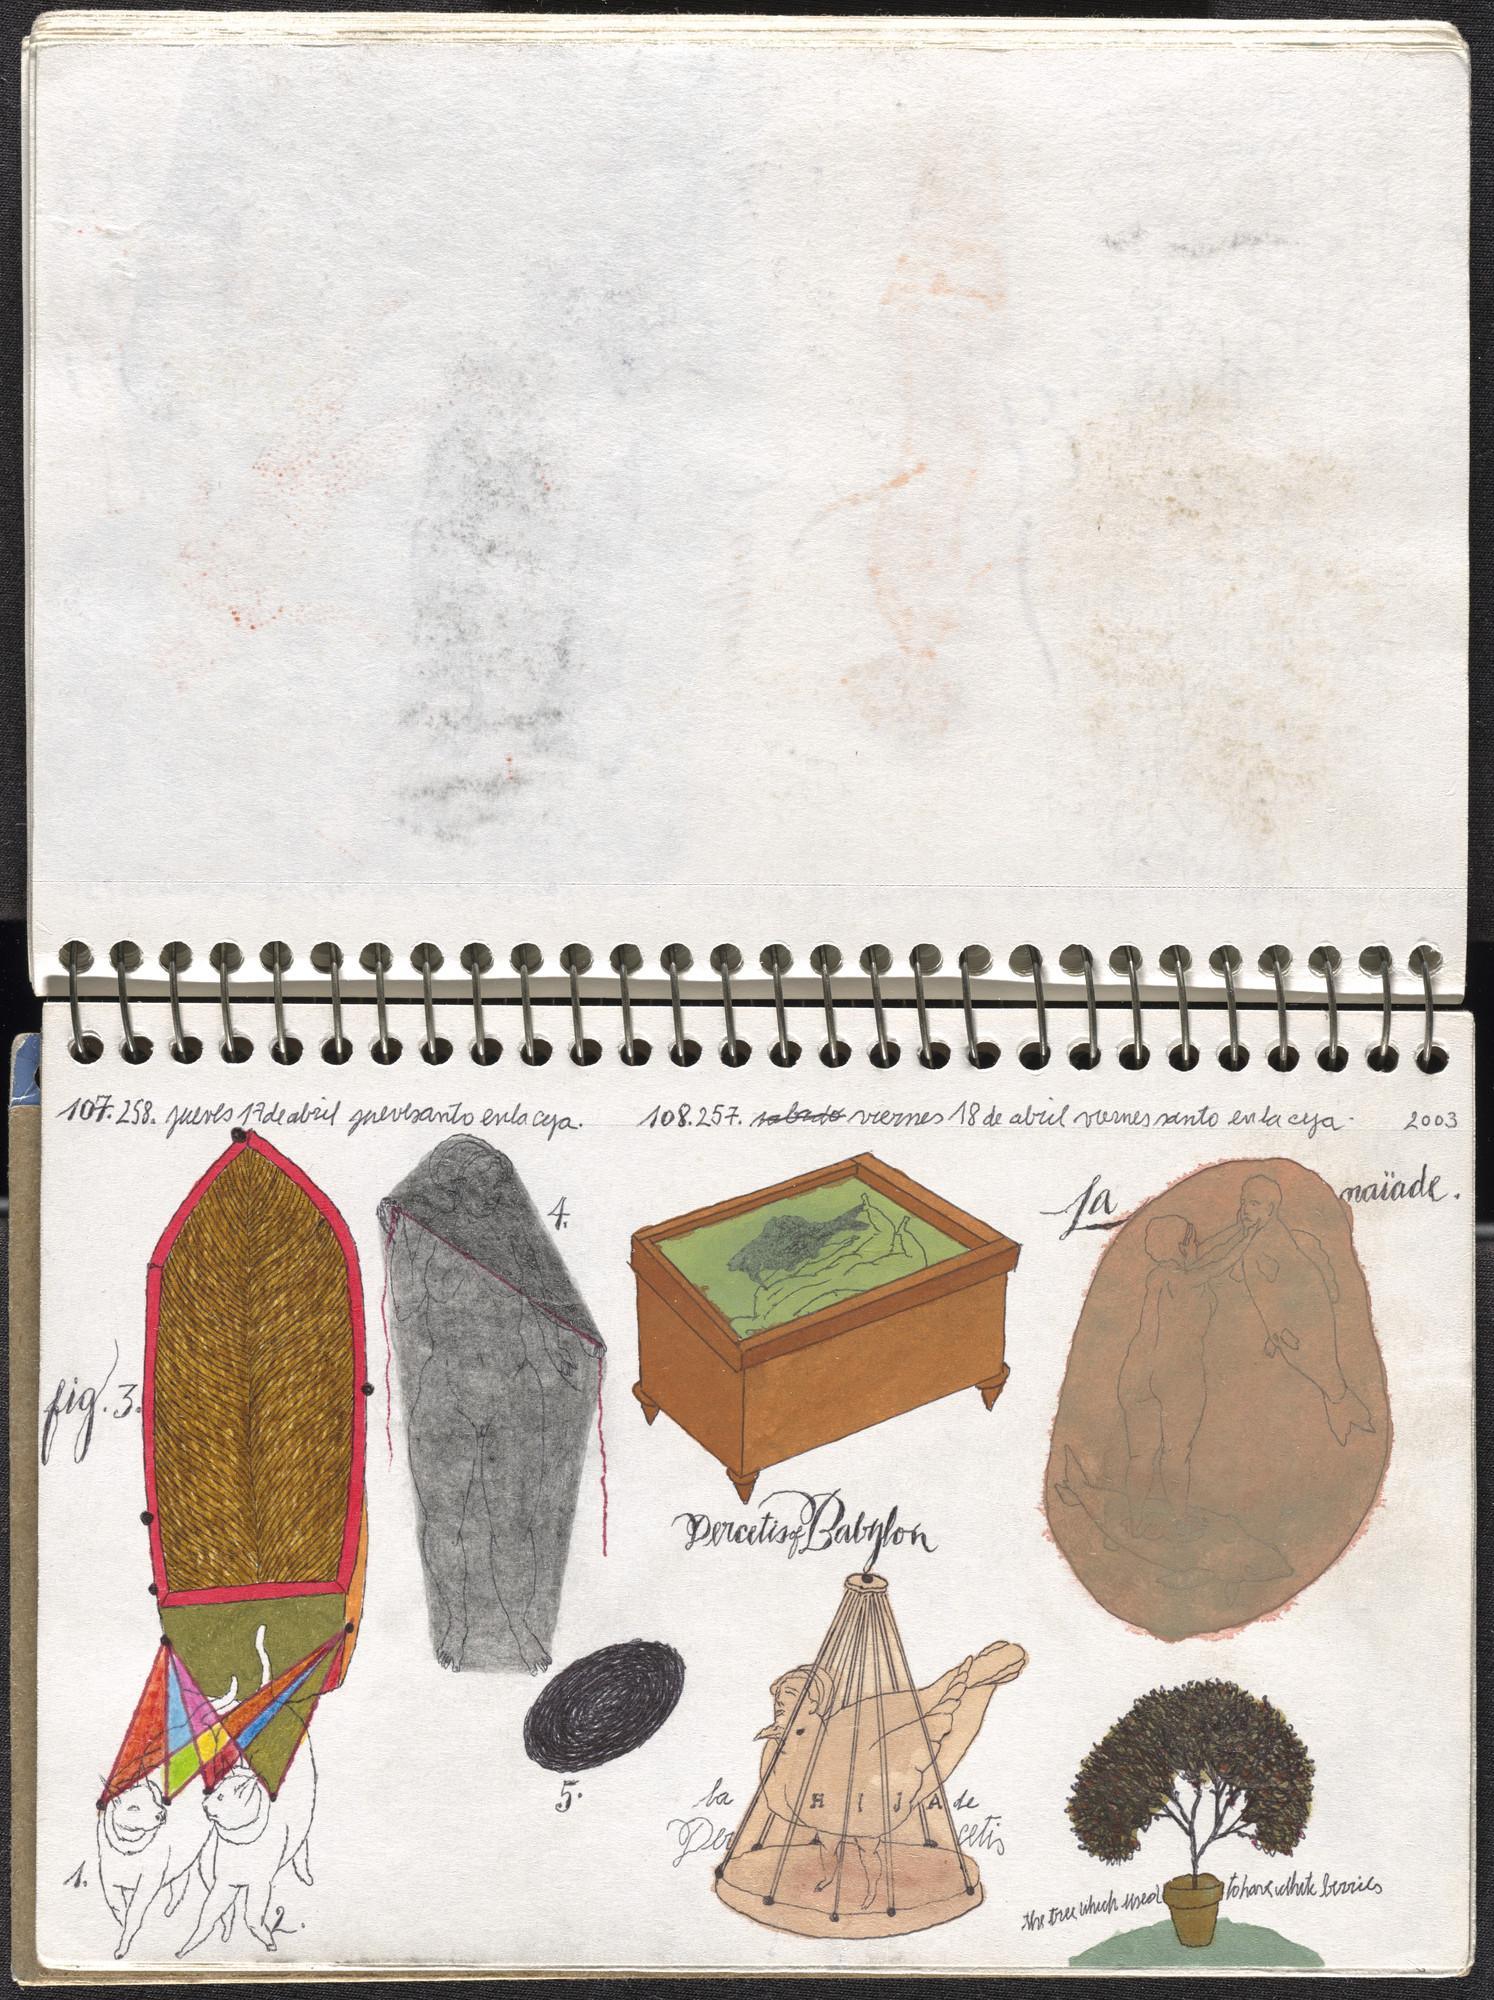 107. 258. jueves 17 de abril juevesanto en la ceja.
108. 257. sabado viernes 18 de abril viernes santo en la ceja. 2003
4.
La naïade.
fig. 3.
Dercetis of Babylon
5.
la HIJA de
Dercetis
1.
2.
the tree which used to have white berries